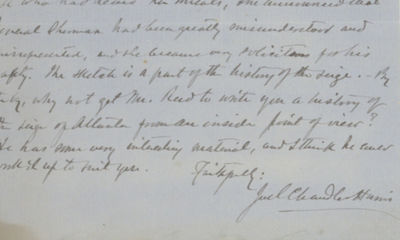 who had never her, one announced that
General Sherman had been greatly misunderstood and
misrepresented, and she became very solicitous for his
safety. The sketch is a part of the history of the seige. By
the by, why not get Mr. Reed to write you a history of
the seige of Atlanta from an inside point of view?
He has some very interesting material, and I think he could
work it up to suit you.
Faithfully:
Joel Chandler Harris